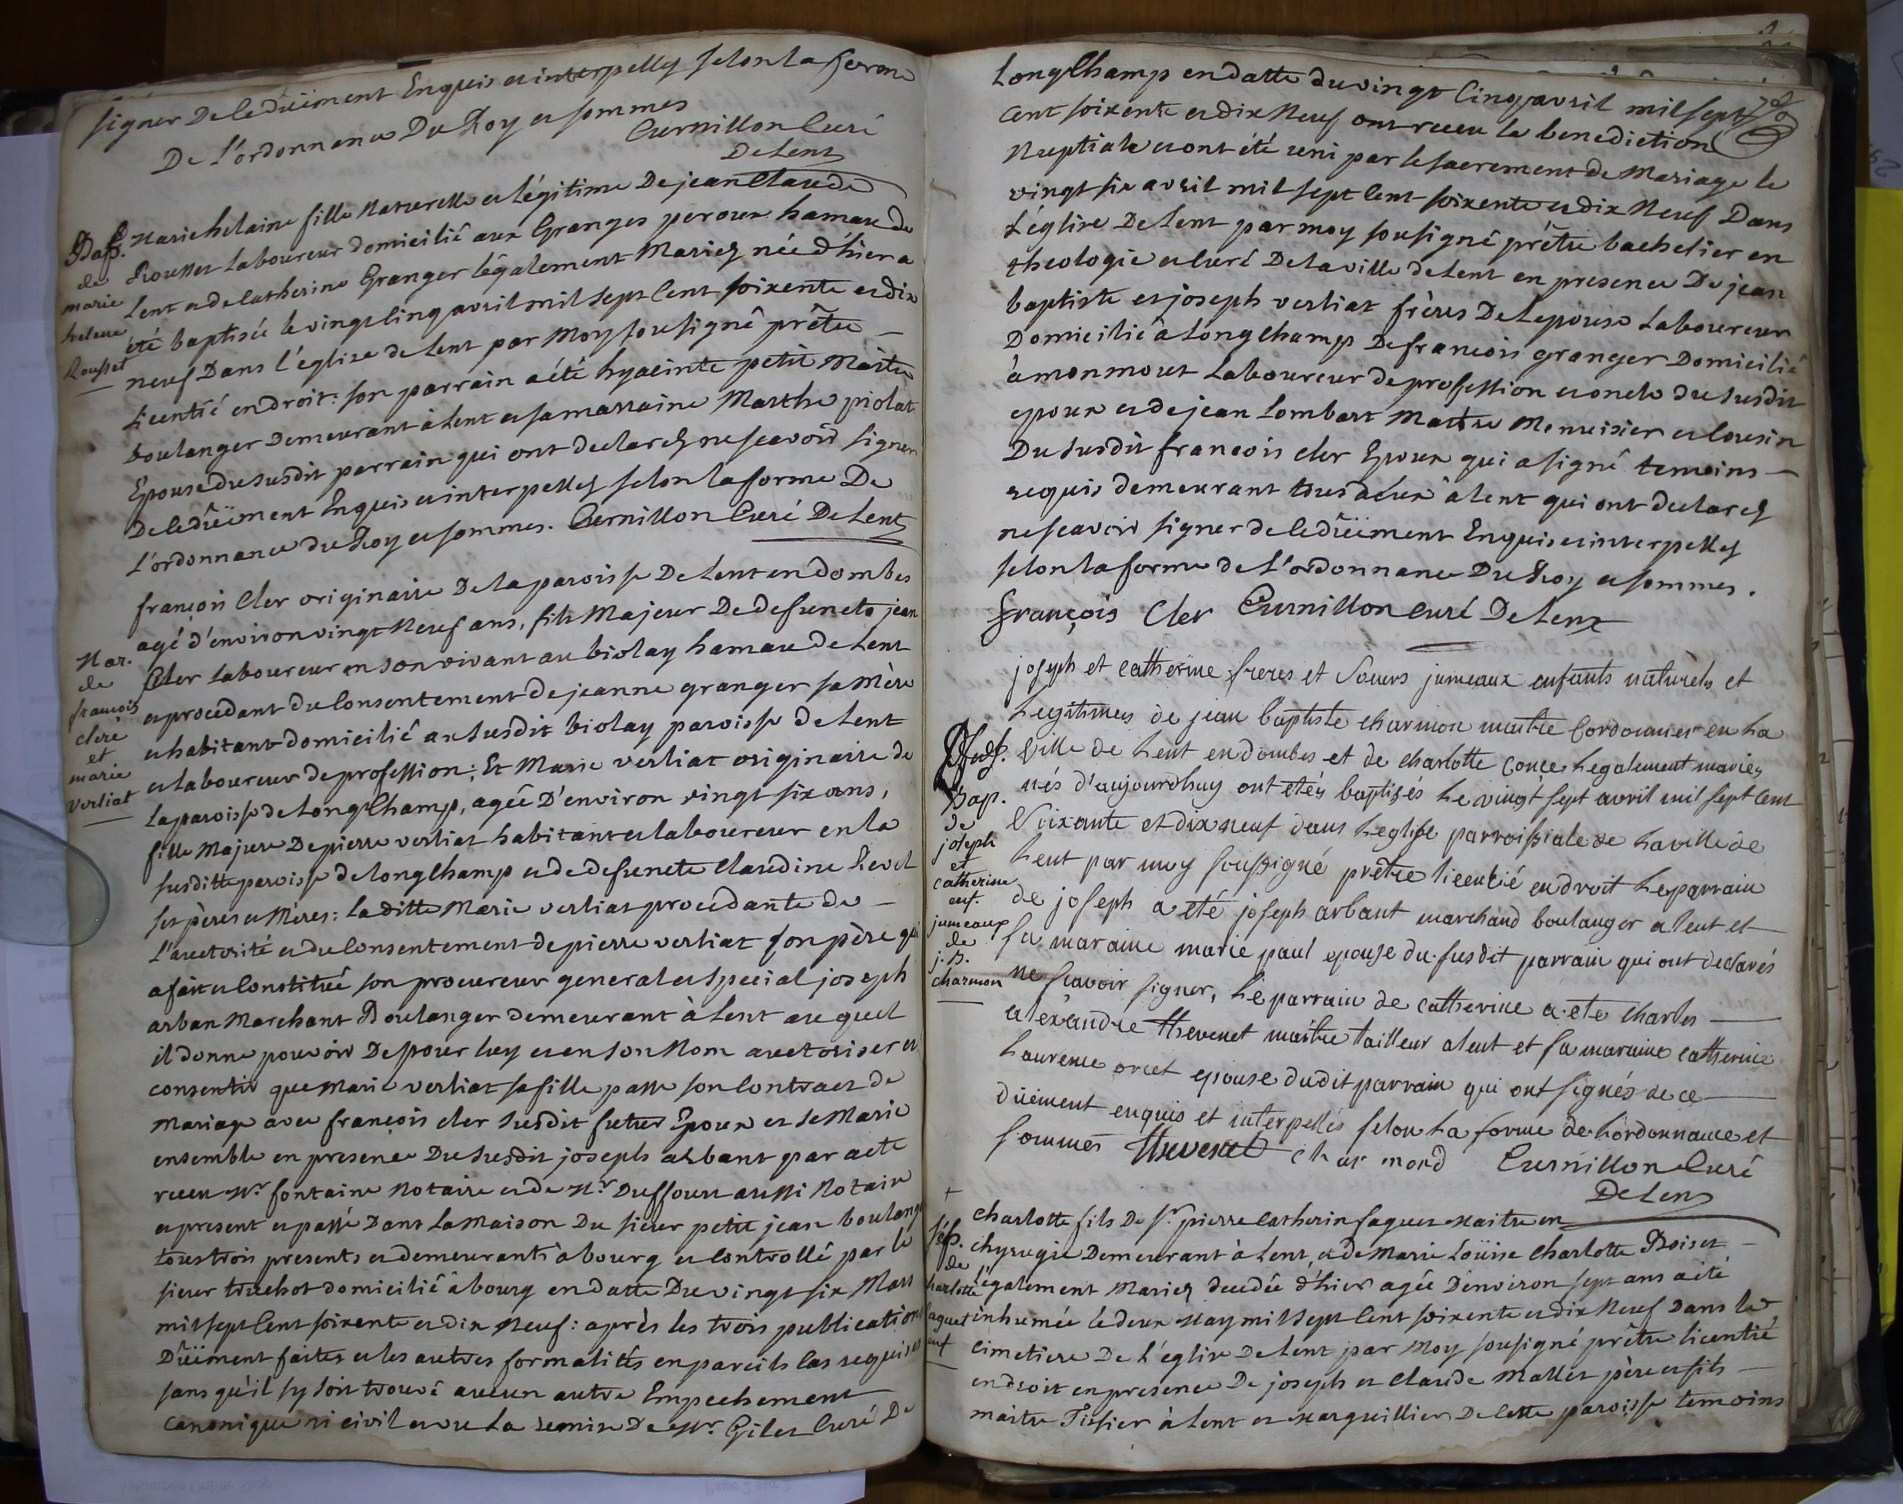 signer De ce düeiment Enquis et interpellez selon la forme
De L'ordonnance Du Roy et sommes
Curnillon Curé
De Lent
Bap.
de
marie
helene
Rousset
Marie helaine fille Naturelle et Légitime De jean Claude
Rousset Laboureur domicilié aux Granges peroux hamau de
Lent et de Catherine Granger légalement Mariez née d'hier a
été baptisée le vingt cinq avril mil sept Cent soixente et dix
neuf Dans l'église de Lent par Moy sousigné prêtre
Licentié en droit: son parrain a été hyacinte petit Maitre
boulanger Demeurant à Lent et sa marraine Marthe piolat
Epouse du susdit parrain qui ont declarez ne scavoir signer
De ce düeiment Enquis et interpellez selon la forme De
L'ordonnance du Roy et sommes. Curnillon Curé De Lent
Mar.
de
francois
clere
et
marie
verliat
françois Cler originaire De la paroisse De Lent en dombes
agé d'environ vingt Neuf ans, fils Majeur De defuncts jean
Cler Laboureur en son vivant au biolay hamau de Lent
et procedant du Consentement de jeanne granger sa Mère
et habitant domicilié au susdit biolay paroisse de Lent
et laboureur de profession; Et Marie verliat originaire de
la paroisse de Longchamp, agée D'environ vingt six ans,
fille Majeure De pierre verliat habitant et laboureur en la
susditte paroisse de longchamp et de defuncte Claudine Revel
ses pères et Mères: la ditte Marie verliat procedante de
L'auctorité et du Consentement de pierre verliat son père qui
a fait et Constitué son procureur general et special joseph
arban Marchant Boulanger demeurant à Lent au quel
il donne pouvoir De pour luy et en son Nom auctoriser et
consentir que Marie verliat sa fille passe son Contract de
Mariage avec françois cler susdit futur Epoux et se Marie
ensemble en presence Du susdit joseph arbant par acte
receu Mr fontaine Notaire et de Mr Duffour aussi Notaire
et present et passé Dans La maison Du sieur petit jean boulanger
tous trois presents et demeurants à bourg et Controllé par le
sieur truchot domicilié à bourg en datte Du vingt six Mars
mil sept Cent soixente et dix Neuf: après les trois publications
Düeiment faites et les autres formalités en pareils Cas requises
sans qu'il sy soit trouvé aucun autre Empechement
canonique ni civil et vu La remise De Mr. Giles Curé De
LongChamp en datte du vingt Cinq avril mil sept
Cent soixente et dix Neuf ont receu la benediction
Nuptiale et ont été uni par le sacrement de Mariage le
vingt six avril mil sept Cent soixente et dix Neuf Dans
L'église De Lent par moy sousigné prêtre bachelier en
theologie et Curé De la ville de Lent en presence De jean
baptiste et joseph verliat frères De Lepouse Laboureur
Domicilié à Longchamp De francois granger Domicilié
à monmout Laboureur de profession et oncle du susdit
epoux et de jean Lombart Maitre Menuisier et Cousin
Du susdit francois cler Epoux qui a signé temoins
requis demeurant tous deux à Lent qui ont declarez
ne scavoir signer de ce düeiment Enquis et interpellez
selon la forme de L'ordonnance Du Roy et sommes.
françois Cler Curnillon curé De Lent
Bap.
de
joseph
et
catherine
enf.
jumeaux
de
j. B.
charmon
joseph et catherine freres et sœurs jumeaux enfants naturels et
Legitimes de jean baptiste charmon maitre Cordonnier en La
Ville de Lent en dombes et de charlotte Conçe Legalement mariez
nés d'aujourd'huy ont étés baptisés Le vingt sept avril mil sept Cent
soixante et dix neuf dans L'eglise parroissiale de La ville de
Lent par moy soussigné prêtre licentié en droit Le parrain
de joseph a été joseph arbant marchand boulanger a lent et
sa maraine marie paul epouse du susdit parrain qui ont declarés
ne scavoir signer, Le parrain de catherine a été charles
alexandre thevenet maitre tailleur a lent et sa maraine catherine
Laurence orcet epouse dudit parrain qui ont signés de ce
düement enquis et interpellés selon La forme de L'ordonnance et
sommes Thevenet Charmond Curnillon Curé
De Lent
†
Sép.
de
charlotte
saquet
enf
charlotte fils De Sr pierre Catherin saquet Maitre en
chyrugie Demeurant à Lent, et de Marie Loüise Charlotte Boiset
légalement Mariez decedée d'hier agée D'environ sept ans a été
inhumée le deux May mil sept Cent soixente et dix Neuf Dans le
cimetiere De L'église De Lent par Moy sousigné prêtre licentié
en droit en presence De joseph et Claude Mallet père et fils
maitre Tissier à Lent et Marguillier De Cette paroisse temoins